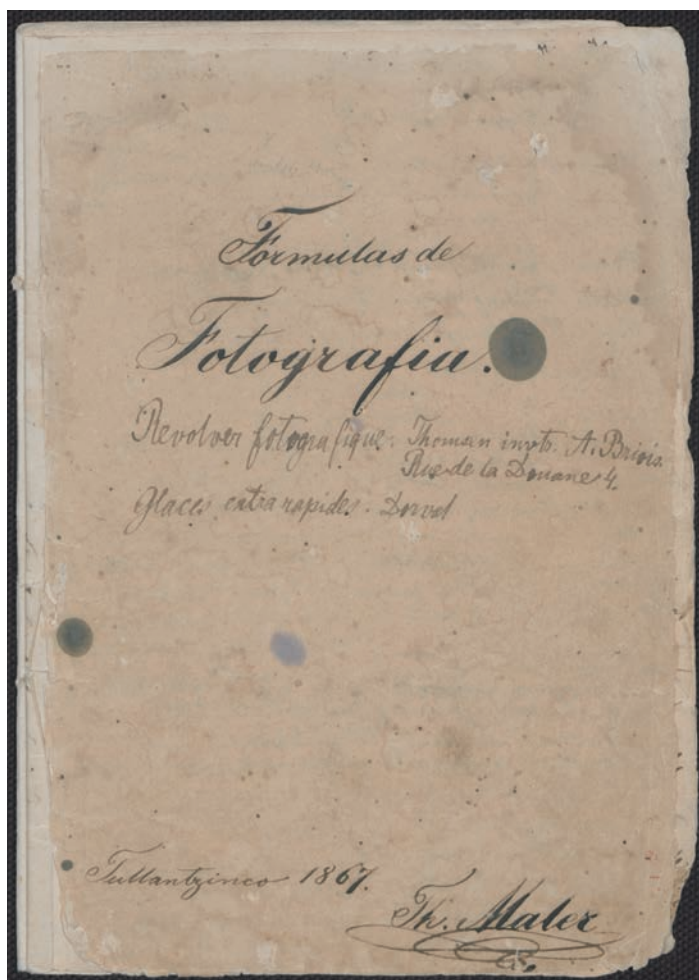 Fórmulas de
Fotografia.
Revolver fotografique. Thomson invts. A. Briois.
Rue de la Douane 4.
Glaces extra rapides. Dorval
Tullantzinco 1867.
Th. Maler